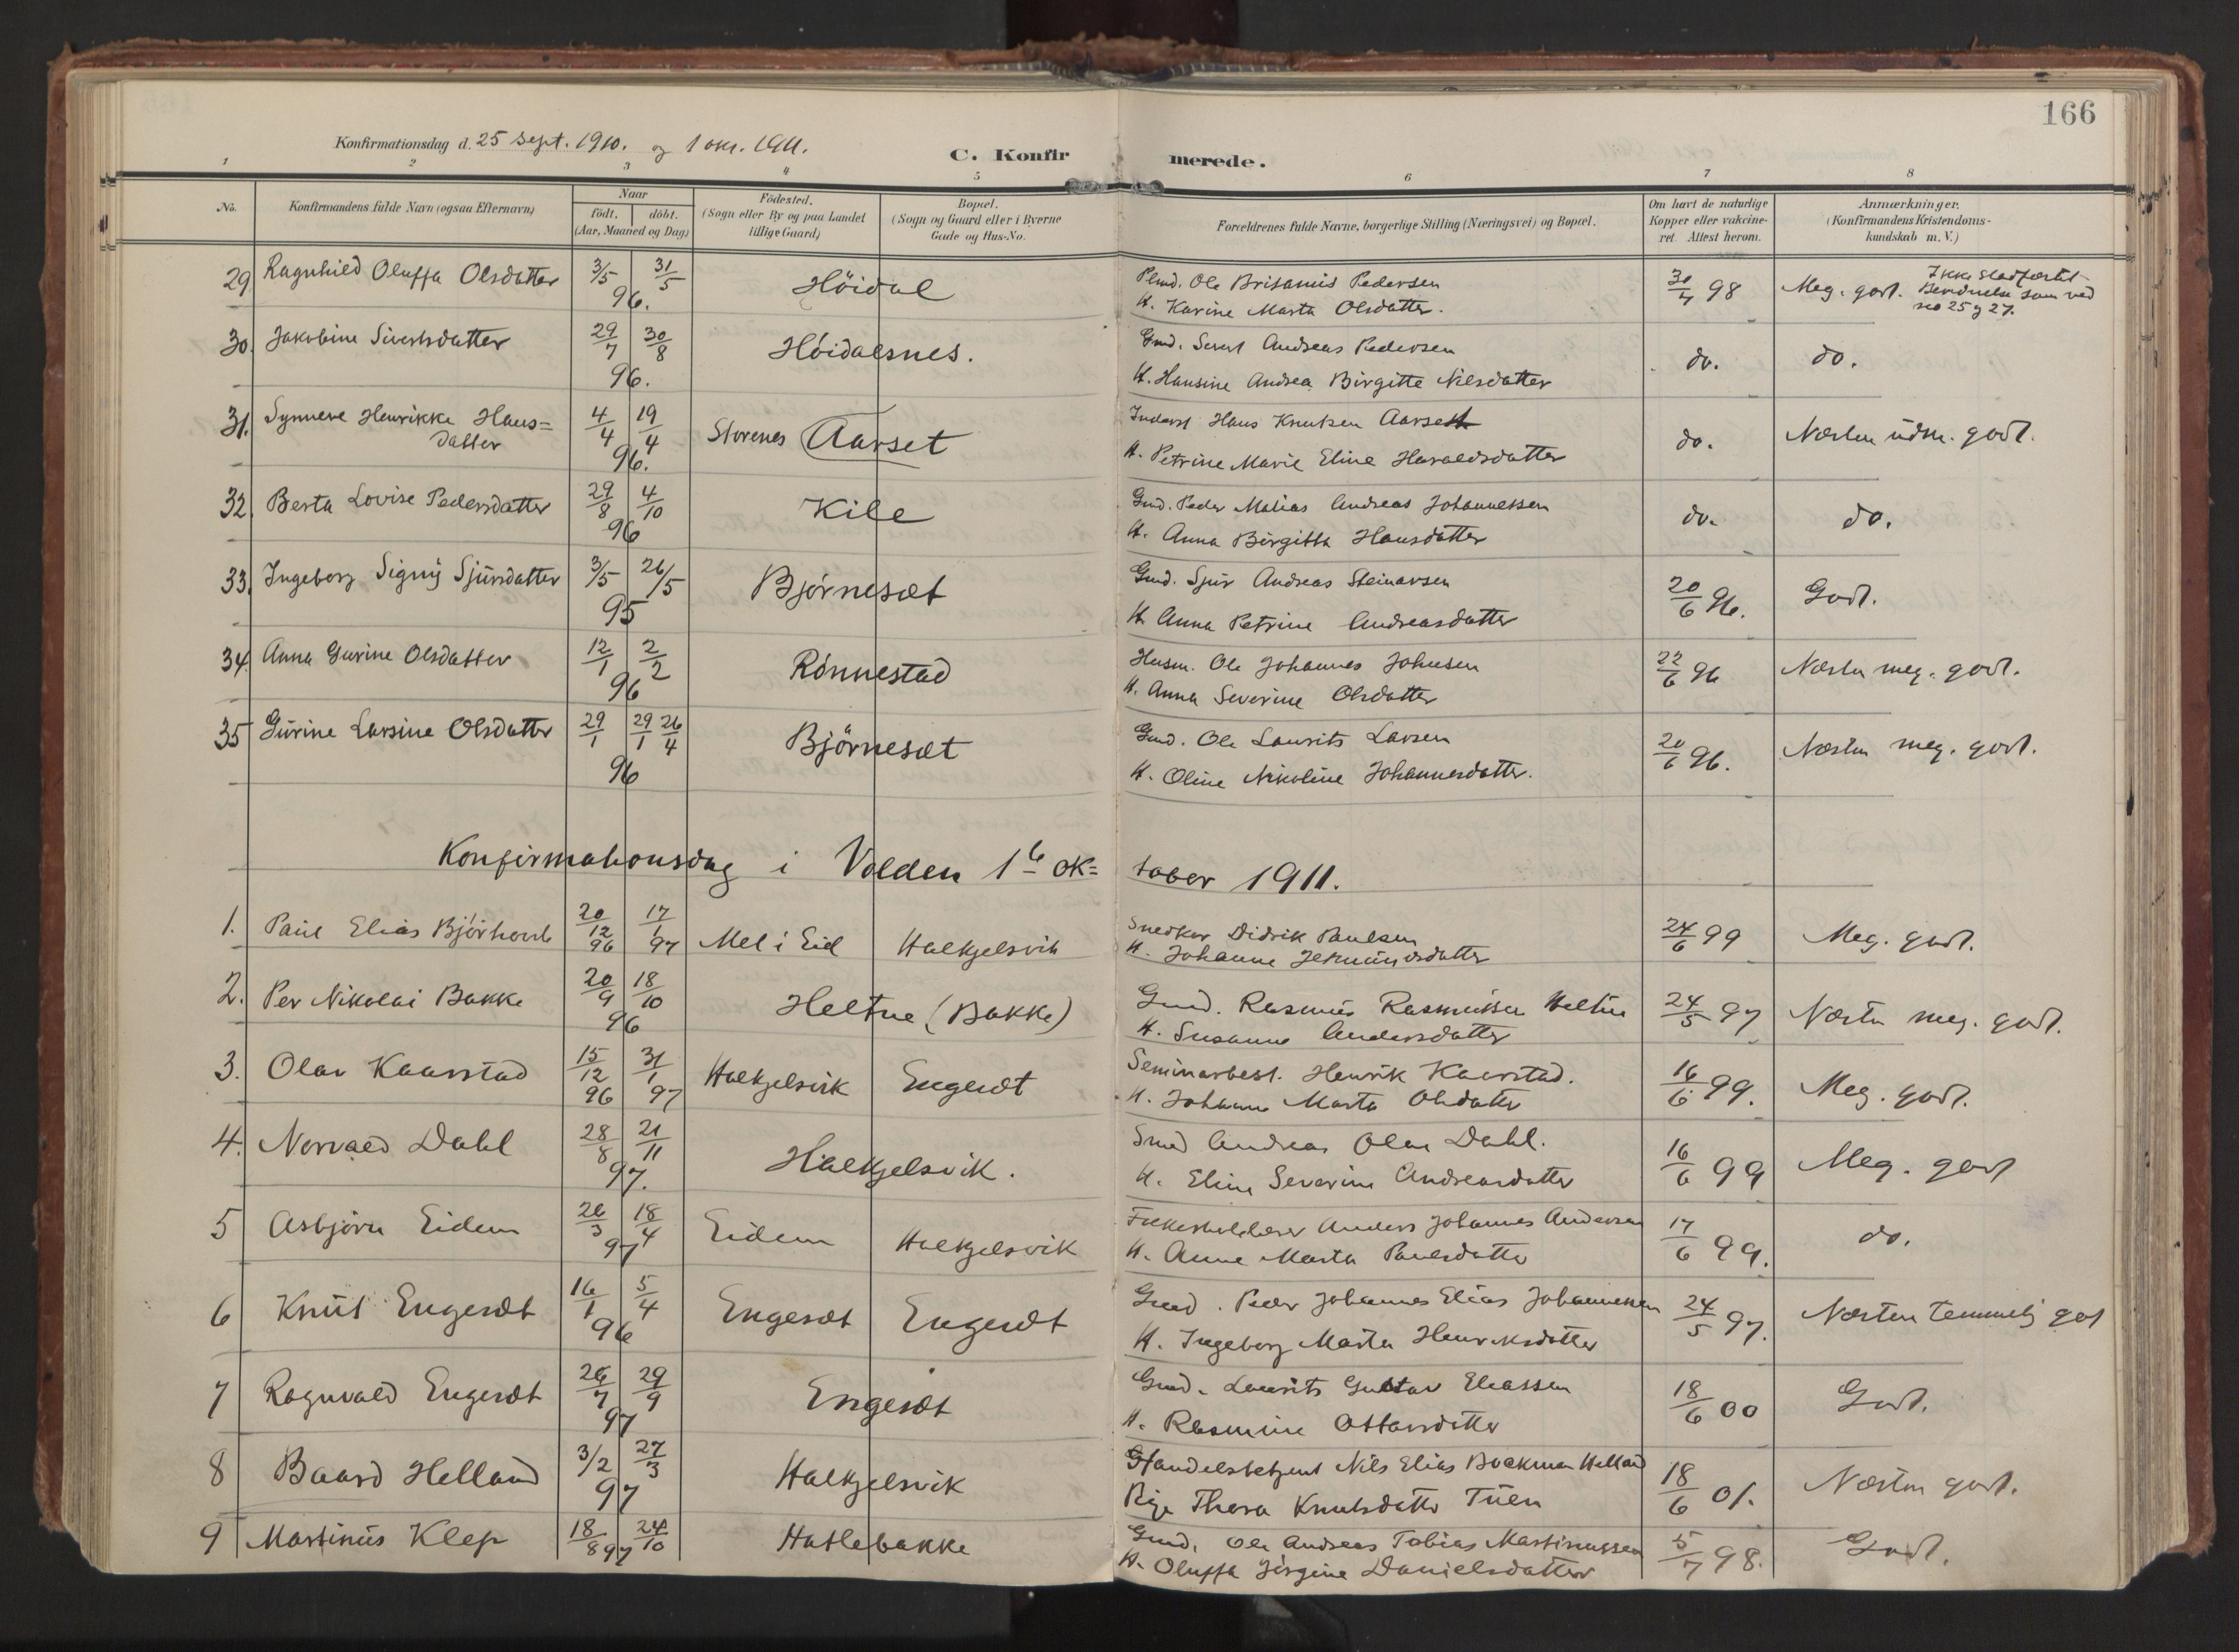 166
Konfirmationsdag d. 25 sept. 1910. og 1 okt. 1911.
C. Konfirmerede.
1 2 3 4 5 6 7 8
No.
Konfirmandens fulde Navn (ogsaa Efternavn)
Naar
födt, döbt.
(Aar, Maaned og Dag)
Födested.
(Sogn eller By og paa Landet
tillige Gaard)
Bopæl.
(Sogn og Gaard eller i Byerne
Gade og Hus-No.
Forældrenes fulde Navne, borgerlige Stilling (Næringsvei) og Bopæl.
Om havt de naturlige
Kopper eller vakcine-
ret. Attest herom.
Anmærkninger.
(Konfirmandens Kristendoms-
kundskab m. V.)
29 Ragnhild Oluffa Olsdatter 3/5 31/5 96. Höidal
Ole Brisanius Pedersen
K. Karine Marta Olsdatter.
30/7 98 Meg. godt. Ikke stadfæstet
som ved
no 25 og 27.
30. Jakobine Sivertsdatter 29/7 30/8 96. Höidalsnes.
Gmd. Sivert Andreas Pedersen
K. Hansine Andrea Birgitte Nilsdatter
do. do.
31. Synneve Henrikke Hans=
datter 4/4 19/4 96. Storenes Aarset
Inderst Hans Knutsen Aarset
K. Petrine Marie Eline Haraldsdatter
do. Næsten udm. godt.
32. Berta Lovise Pedersdatter 29/8 4/10 96 Kile
Gmd. Peder Matias Andreas Johannessen
K. Anna Birgitta Hansdatter
do. do.
33. Ingeborg Signÿ Sjürsdatter 3/5 26/5 95 Björneset
Gmd. Sjur Andreas Steinarsen
K. Anna Petrine Andreasdatter
20/6 96. Godt.
34. Anna Gurine Olsdatter 12/1 2/2 96 Rönnestad
Husm. Ole Johannes Johnsen
K. Anna Severine Olsdatter
22/6 96 Næsten meg. godt.
35 Gürine Larsine Olsdatter 29/1 29/1 26/4 96 Björneset
Gmd. Ole Laurits Larsen
K. Oline Nikoline Johannesdatter.
20/6 96. Næsten meg. godt.
Konfirmationsdag i Volden 1ste ok=tober 1911.
1. Paul Elias 20/12 96 17/1 97 Mel i Eid Halkjelsvik
Snedker Didrik Paulsen
K. Johanne
24/6 99 Meg. godt.
2. Per Nikolai Bakke 20/9 18/10 96 Heltne (Bakke)
Gmd. Rasmus Rasmussen Heltne
K. Susanne Andersdatter
24/5 97 Næsten meg. godt.
3. Olav Kaarstad 15/12 96 31/1 97 Halkjelsvik Engeset
Seminarbest. Henrik Kaarstad.
K. Johanne Marta Olsdatter
16/6 99. Meg. godt.
4. Norvald Dahl 28/8 21/11 97. Halkjelsvik.
Smed Andreas Olav Dahl.
K. Eline Severine Andreasdatter
16/6 99 Meg. godt
5 Asbjörn Eidem 26/3 18/4 97 Eidem Halkjelsvik
Anders Johannes Andersen
K. Anne Marta Paulsdatter
17/6 99. do.
6 Knüt Engeset 16/1 5/4 96 Engeset Engeset
Gmd. Peder Johannes Elias Johannessen
K. Ingeborg Marta Henriksdatter
24/5 97. Næsten temmelig godt
7 Ragnvald Engeset 26/7 29/9 97 Engeset
Gmd. Laurits Gustav Eliassen
K. Rasmine Ottarsdatter
18/6 00 Godt.
8 Baard Helland 3/2 27/3 97 Halkjelsvik
Handelsbetjent Nils Elias Brekman Helland
Pige Thora Knutsdatter Tüen
18/6 01. Næsten godt.
9 Martinüs Klep 18/8 24/10 97 Hatlebakke
Gmd. Ole Andreas Tobias Martinussen
K. Oluffa Jörgine Danielsdatter
5/7 98. Godt.